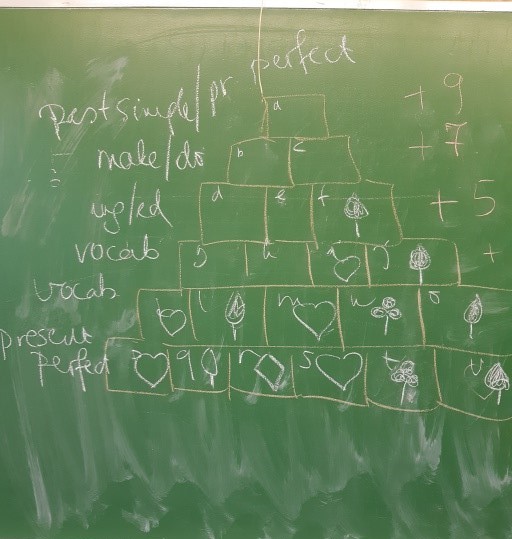 past simple/pr perfect
a + 9
make/do b c + 7
ing/ed d e f + 5
vocab g h i j +
vocab k l m n o
present
perfect p q r s t u